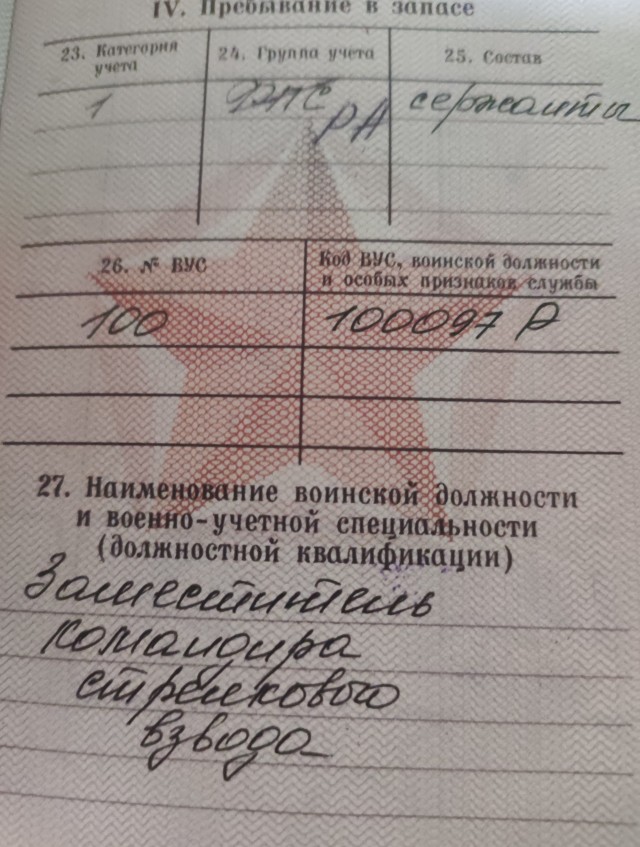 IV. Пребывание в запасе
23. Категория учета
24. Группа учета
25. Состав
1
РА
сержанты
26. № ВУС
Код ВУС, воинской должности
и особых признаков службы
100
100097 Р
27. Наименование воинской должности
и военно-учетной специальности
(должностной квалификации)
Заместитель
командира
стрелкового
взвода